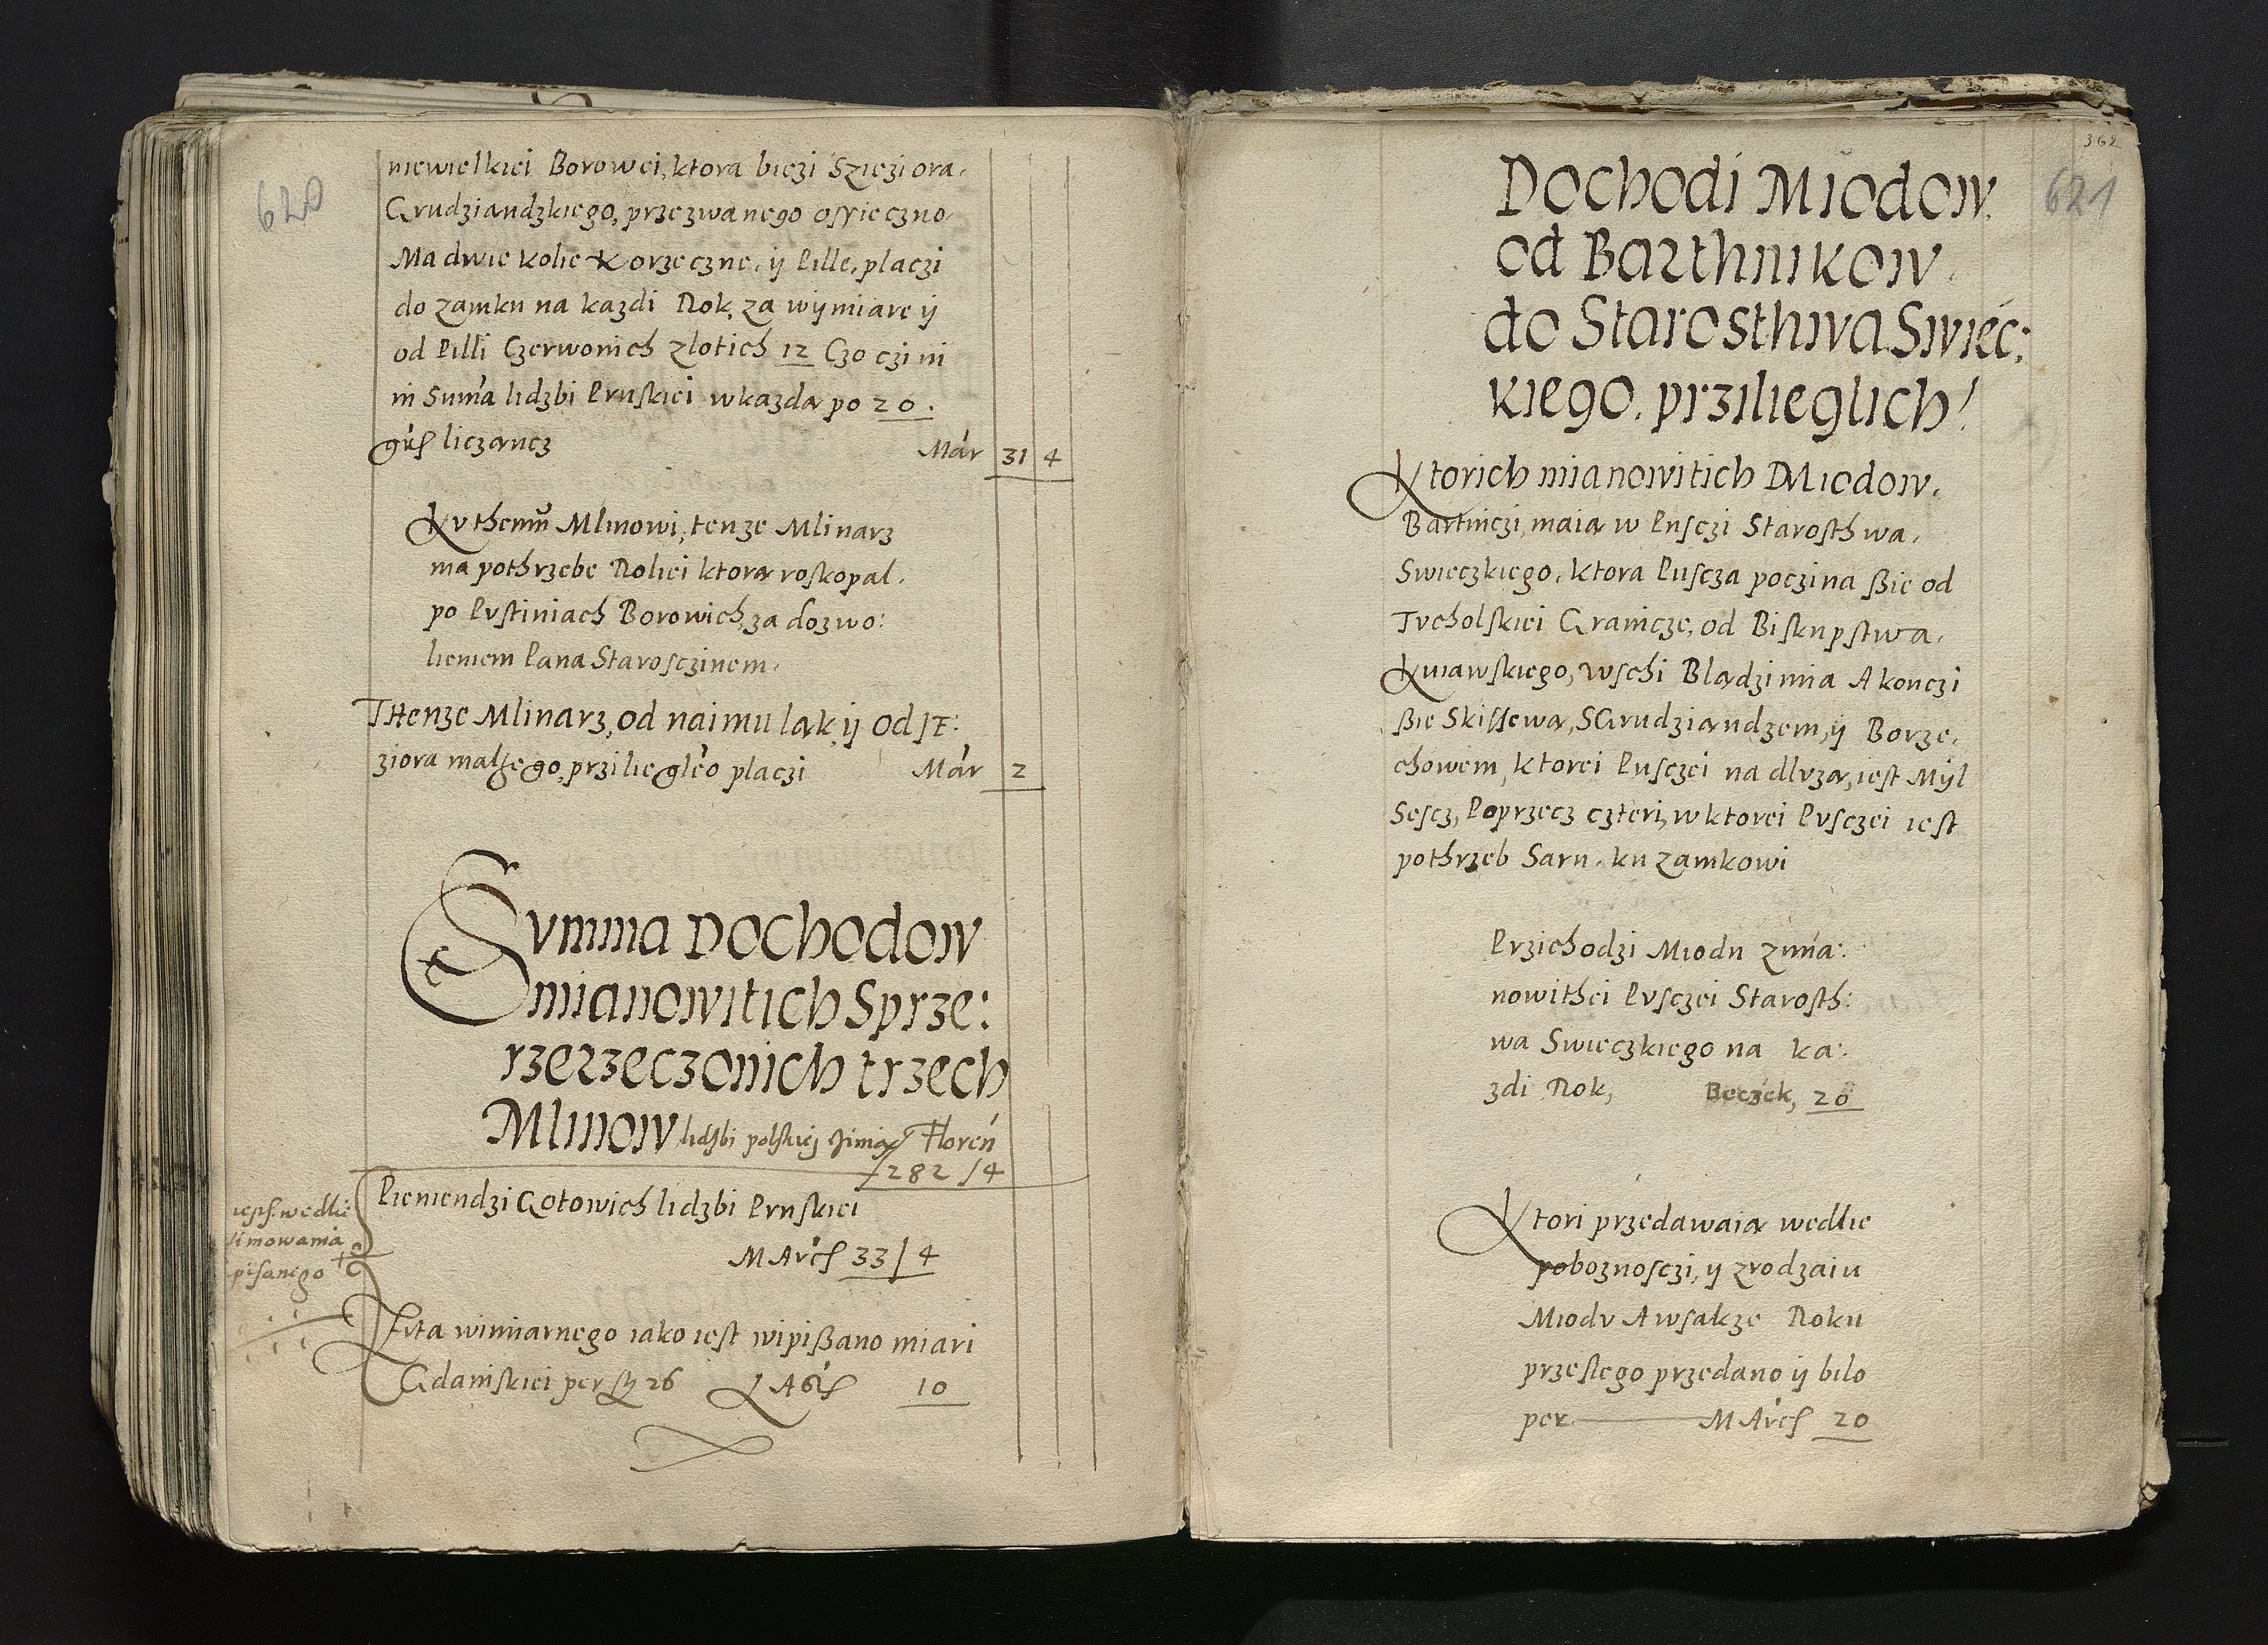 620
niewielkiei Borowei, ktora biezi Szieziora.
Grudziandzkiego, przezwanego ossieczno
Ma dwie kolie korzeczne, ij Pille, placzi
do zamku na kazdi Rok, za wijmiare ij
od Pilli Czerwonich zlotich 12 Czo czini
in Suma lidzbi Pruskiei wkazda po 20.
liczancz Mar 31 4
Kvthemu Mlinowi, tenze Mlinarz
ma pothrzebe Roliei ktora roskopal.
po Pvstiniach Borowich, za dozwo:
lieniem Pana Starosczinem.
THenze Mlinarz, od naimu lak ij od JE:
ziora malzego, prziliegleo placzi Mar 2
Svmma Dochodow
mianowitich Sprze:
rzerzeczonich trzech
Mlinow lidzbi polskiej Floren
282 / 4
Pieniendzi Gotowich lidzbi Pruskiei
MArcs 33 / 4
wedlie
pisanego
Zita wimiarnego iako iest wipißano miari
Gdanskiei per 26 LAs 10
362
621
Dochodi Miodow
od Barthnikow
do Starosthwa Swiec:
kiego, przilieglich
Ktorich mianowitich Miodow.
Bartniczi, maia w Pusczi Starosthwa.
Swieczkiego, ktora Puscza poczina ßie od
Tvcholskiei Granicze, od Biskupstwa.
Kuiawskiego, wschi Bladzimia A konczi
ßie Skissewa, SGrudziandzem, ij Borze.
chowem, ktorei Pusczei na dlvza, iest Mijl
Sescz, Poprzecz czteri, w ktorei Pvsczei iest
pothrzeb Sarn. ku zamkowi
Przichodzi Miodu zmia:
nowithei Pvsczei Starosth:
wa Swieczkiego na ka:
zdi Rok, Beczek, 20
Ktori przedawaia wedlie
poboznosczi, ij zrodzaiu
Miodv Awsakze Roku
przeslego przedano ij bilo
per MArcs 20